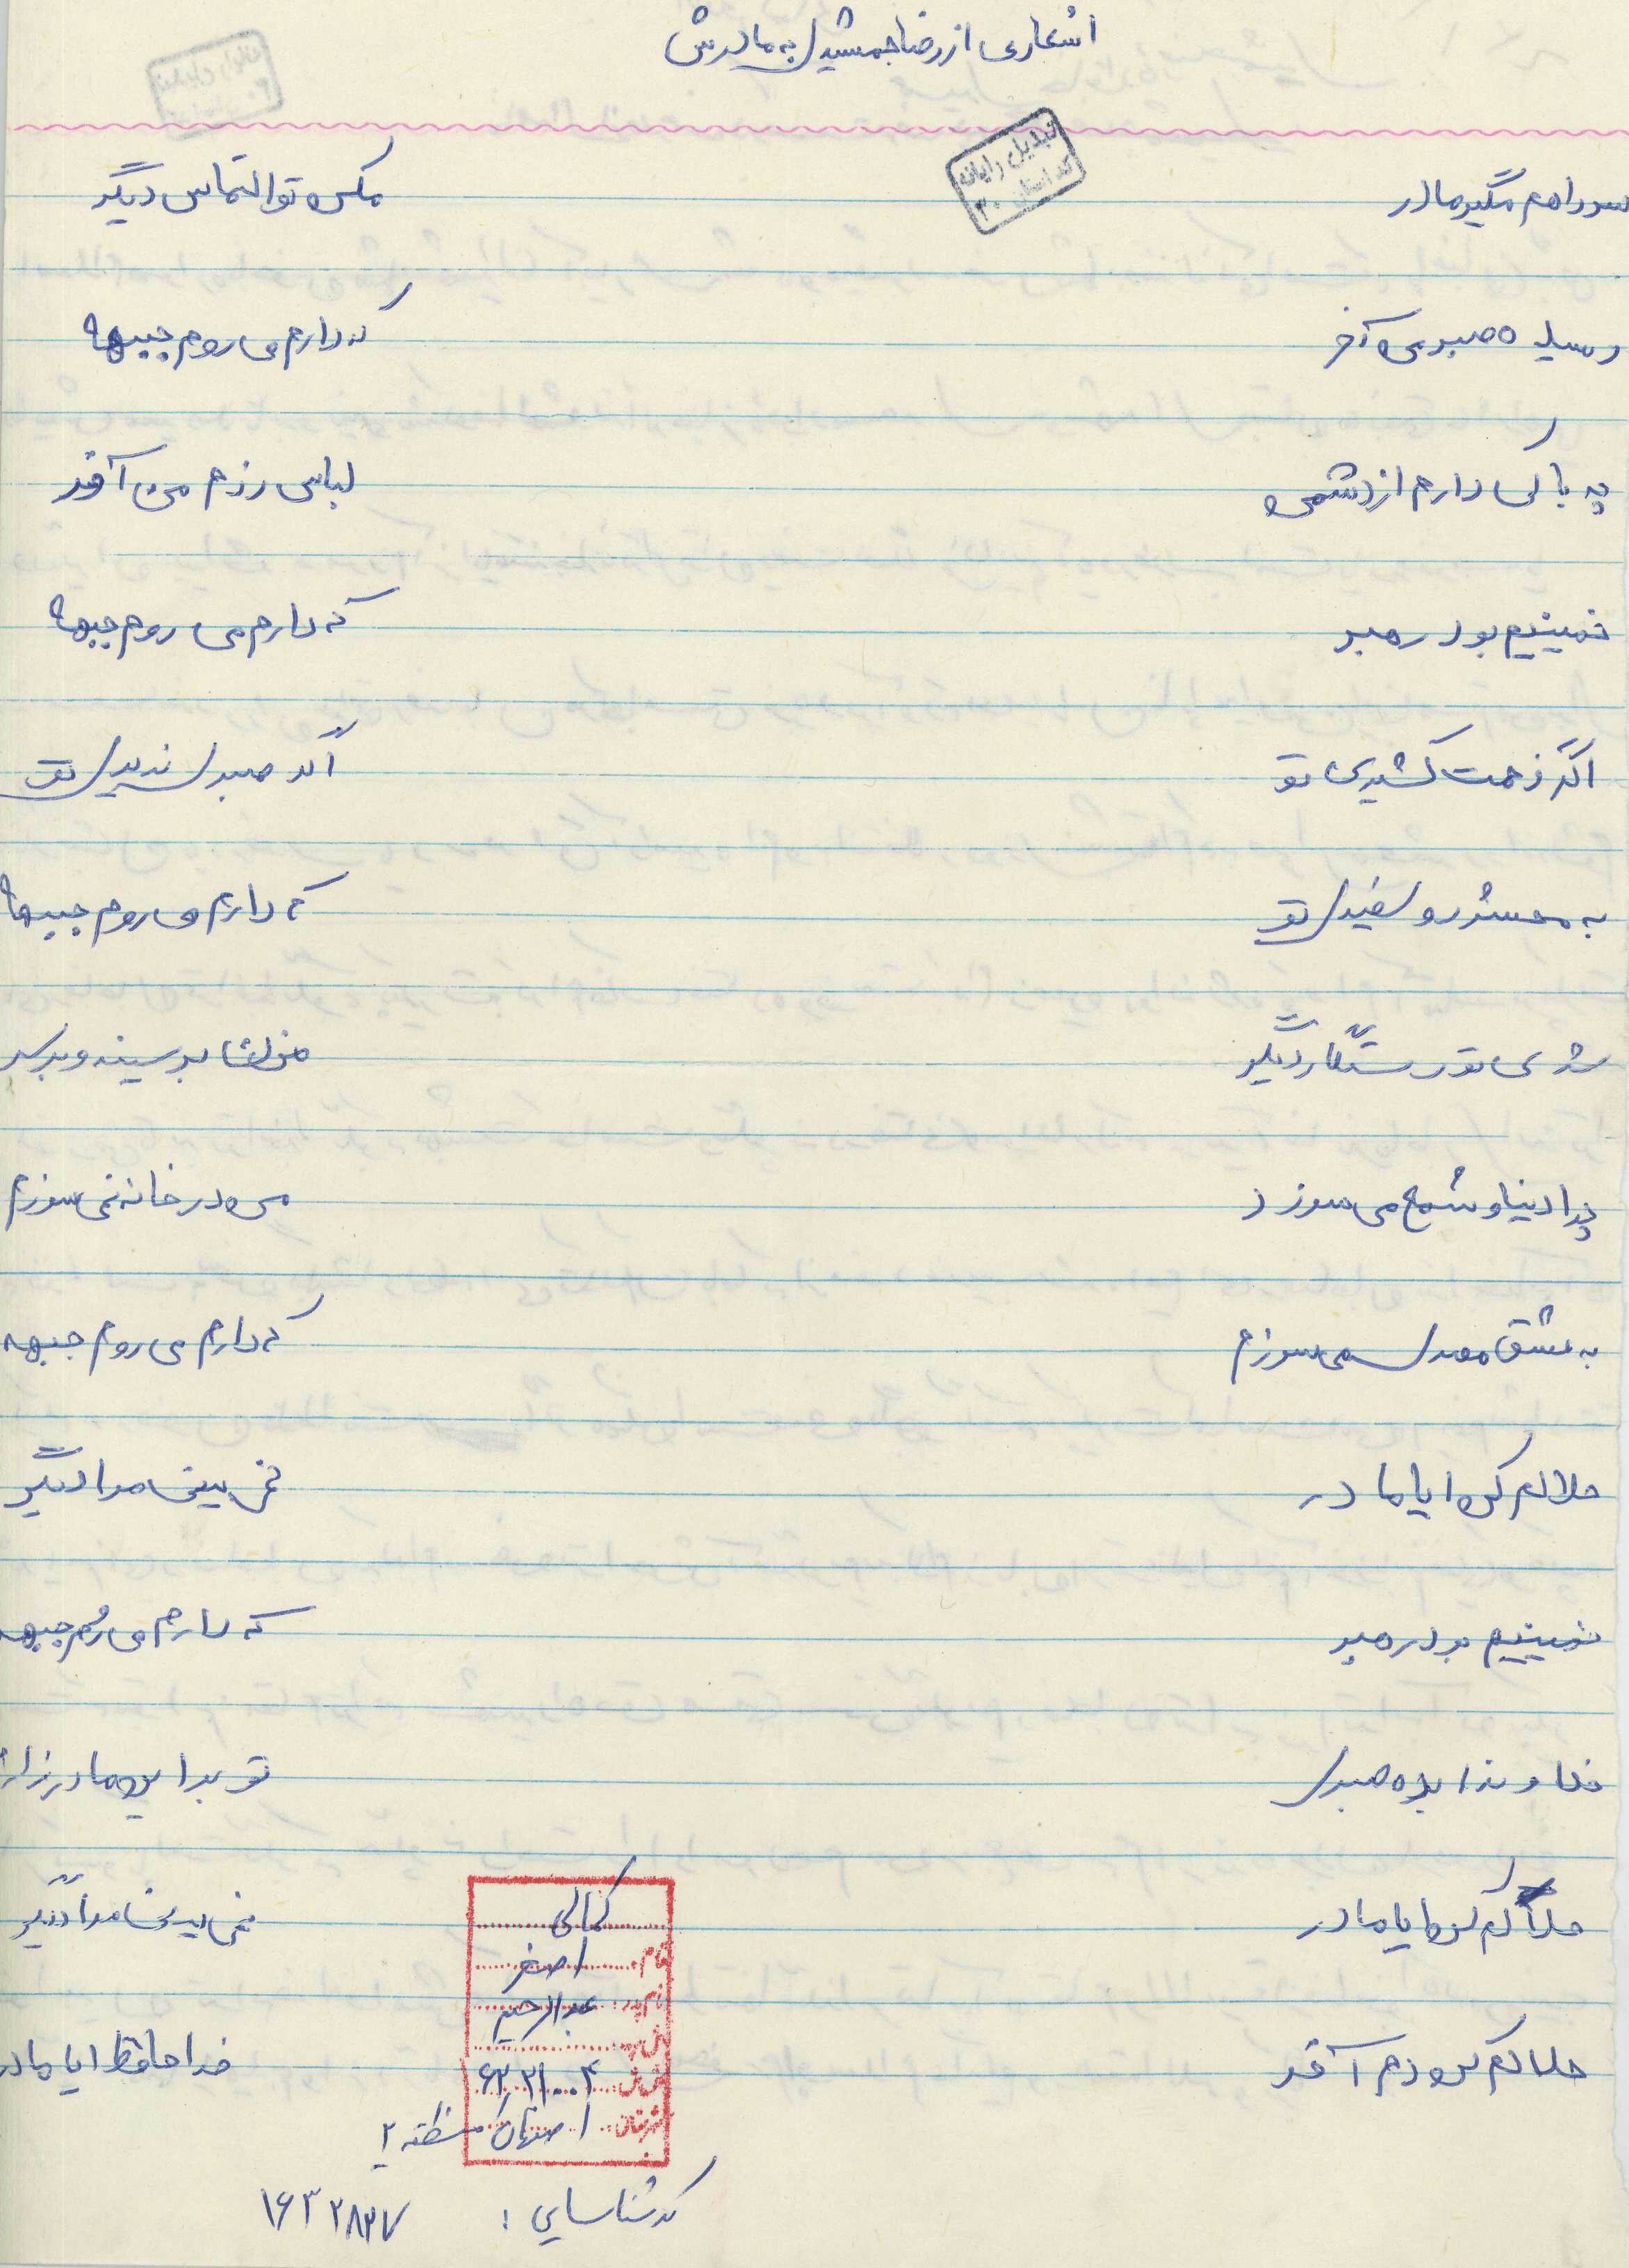 اشعاری از رضا جمشیدی به مادرش
تبدیل رایانه
سر راهم مگیر مادر مکن تو التماس دیگر
رسیده صبر من آخر که دارم می روم جبهه
چه باکی دارم از دشمن لباس رزم من آخر
خمینیم بود رهبر که دارم می روم جبهه
اگر زحمت کشیدی تو اگر صبر ندیدی تو
به محشر رو سفیدی تو که دارم می روم جبهه
شدی تو رستگار دیگر مزن بر سینه و بر سر
چرا دنیا و شمع می سوزد من در خانه نمی سوزم
به عشق مهدی می سوزم که دارم می روم جبهه
حلالم کن ایا مادر نمی بینی مرا دیگر
خمینیم بود رهبر که دارم می روم جبهه
خداوندا بده صبری تو بر این مادر زارم
حلالم کن ایا مادر نمی بینی مرا دیگر
حلالم کن آخر خدا حافظ ایا مادر
کمالی
نام: اصغر
نام پدر: عبدالرحیم
۶۲۲۱۰۰۴
شهرستان: اصفهان منطقه ۲
کد شناسایی: ۱۶۳۲۸۲۷